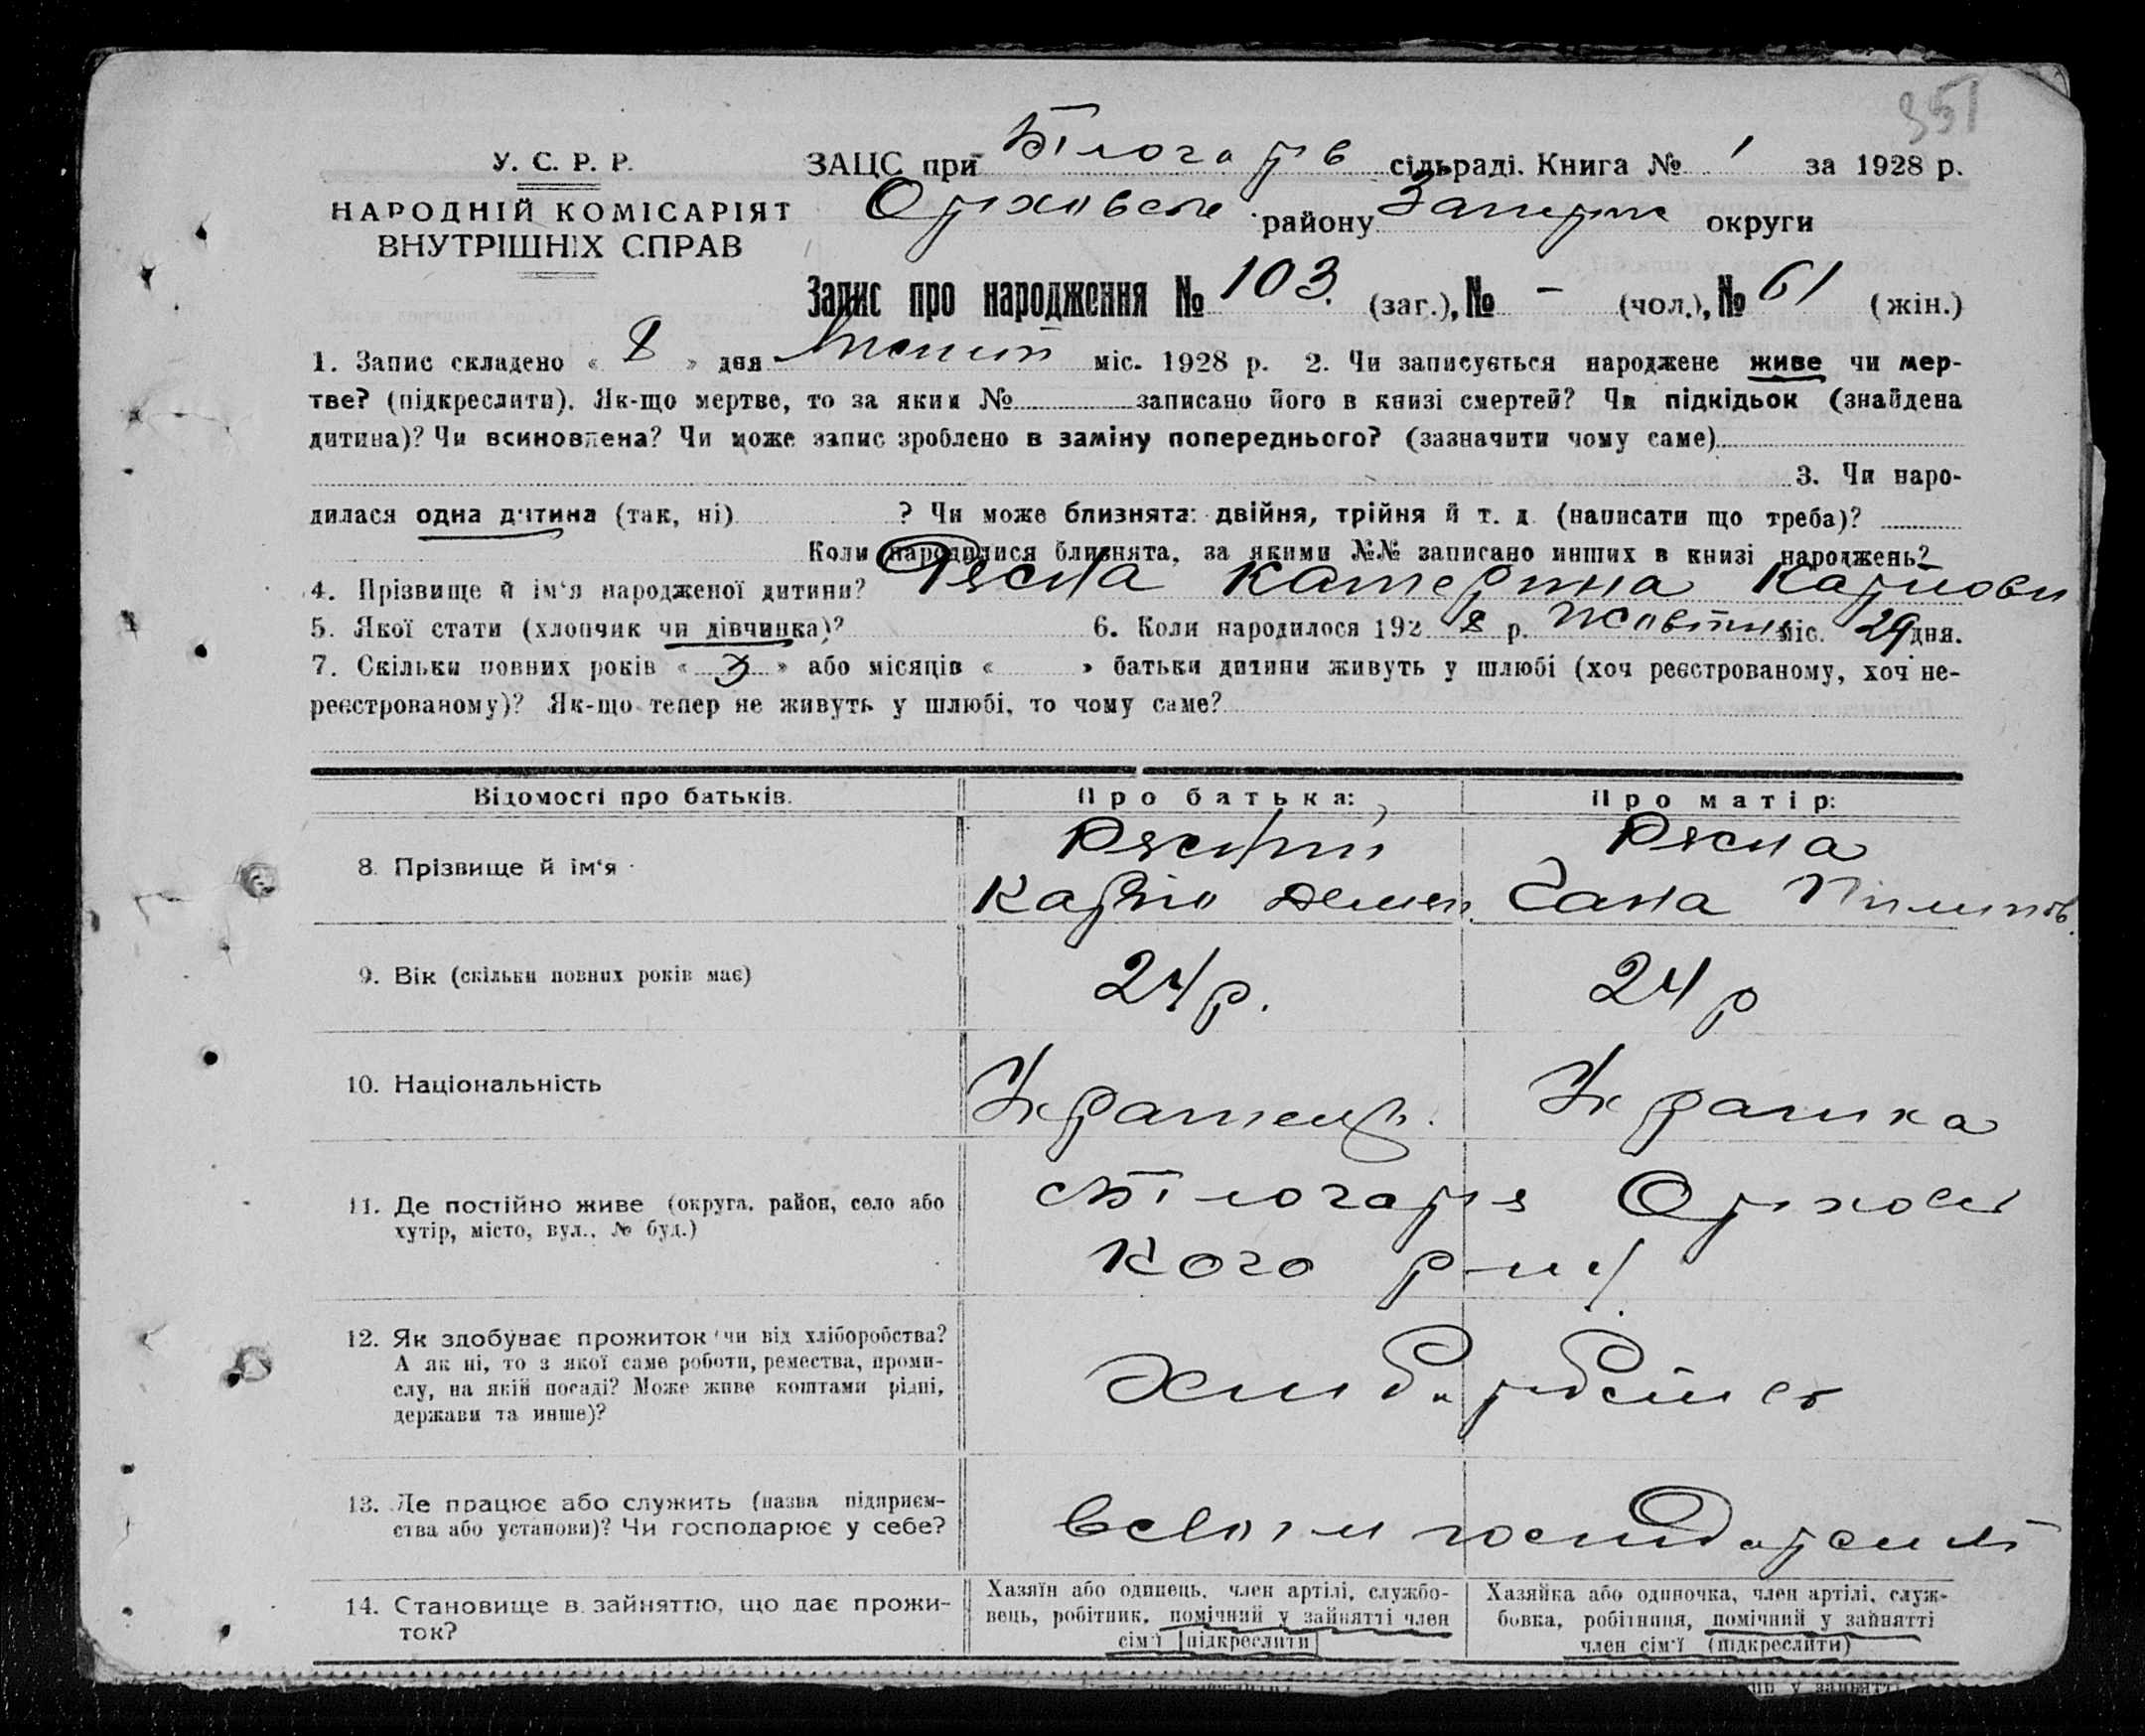 351
У. С. Р. Р.
НАРОДНІЙ КОМІСАРІЯТ
ВНУТРІШНІХ СПРАВ
ЗАЦС при Білогарів сільраді. Книга № 1 за 1928 р.
Оріховськ району Запоріж округи
Запис про народження № 103. (заг.), № - (чол.), № 61 (жін.)
1. Запис складено « 8 » дня міс. 1928 р. 2. Чи записується народжене живе чи мер-
тве? (підкреслити). Як-що мертве, то за яким № записано його в книзі смертей? Чи підкідьок (знайдена
дитина)? Чи всиновлена? Чи може запис зроблено в заміну попереднього? (зазначити чому саме)
3. Чи наро-
дилася одна дитина (так, ні) ? Чи може близнята: двійня, трійня й т. д. (написати що треба)?
Коли народилися близнята, за якими №№ записано инших в книзі народжень?
4. Прізвище й ім‘я народженої дитини? Рясна Катерина Карповн
5. Якої стати (хлопчик чи дівчинка)? 6. Коли народилося 192 8 р. Жовтня міс. 29 дня.
7. Скільки повних років « 3 » або місяців « » батьки дитини живуть у шлюбі (хоч реєстрованому, хоч не-
реєстрованому)? Як-що тепер не живуть у шлюбі, то чому саме?
Відомості про батьків. Про батька: Про матір:
8. Прізвище й ім‘я Рясний Рясна
Карпо Демен Ганна Пилипов.
9. Вік (скільки повних років має) 24 р. 24 р
10. Національність Українець. Українка
11. Де постійно живе (округа, район, село або
хутір, місто, вул., № буд.)
с Білогаря Оріховсь
кого р-ну
12. Як здобуває прожиток чи від хліборобства?
А як ні, то з якої саме роботи, ремества, проми-
слу, на якій посаді? Може живе коштами рідні,
держави та инше)?
Хліборобство
13. Де працює або служить (назва підприєм-
ства або установи)? Чи господарює у себе?
в своїм господарстві
14. Становище в зайняттю, що дає прожи-
ток?
Хазяїн або одинець, член артілі, службо-
вець, робітник, помічний у зайнятті член
сім‘ї [підкреслити]
Хазяйка або одиночка, член артілі, служ-
бовка, робітниця, помічний у зайнятті
член сім‘ї (підкреслити)